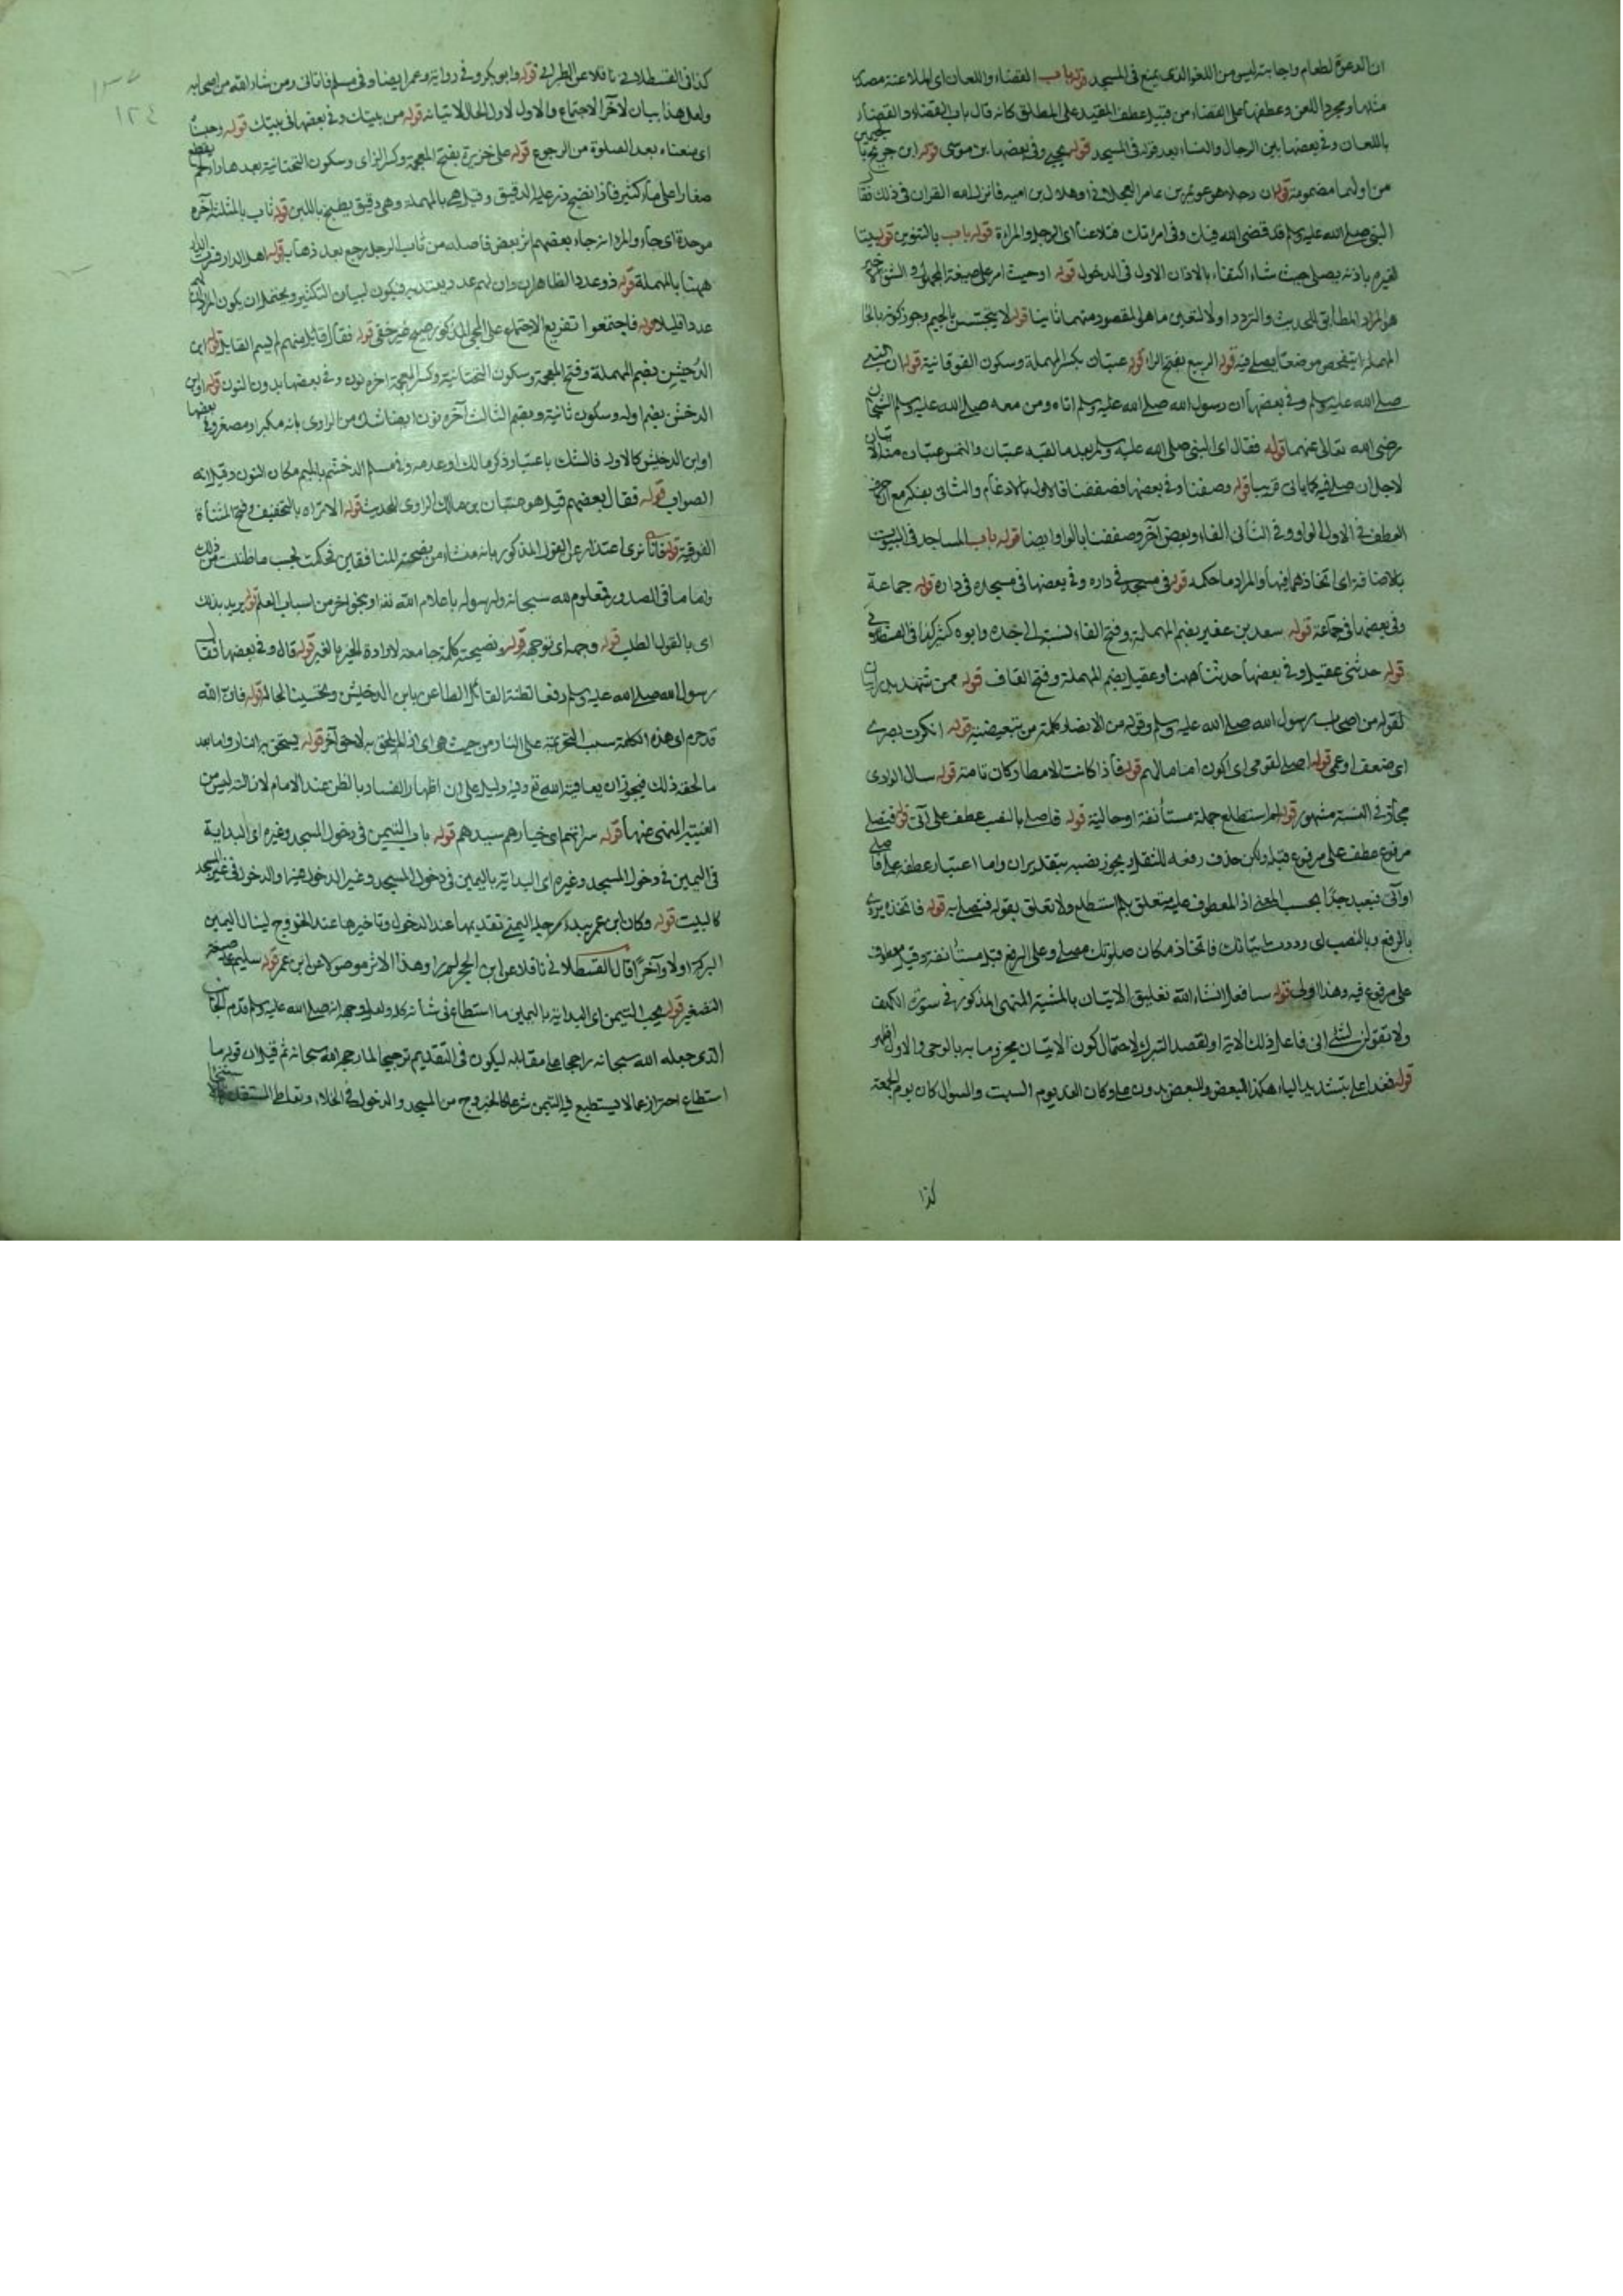 ان الدعوة لطعام واجابته ليس من اللغو الذى يمنع فى المسجد قوله باب القضاء واللعان اى الملاعنة مصدر
منلها ومجرد اللعن وعطفها على القضاء من قبيل عطف المقيد على المطلق كانه قال باب القضاء والقضاء
باللعان وفى بعضها بين الرجال والنساء بعد قوله فى المسجد قوله يحيى وفى بعضها بن موسى قوله ابن جريج بالجيمين
من اولهما مضمومة قوله ان رجلا هو عويمر بن عامر العجلانى او هلال بن اميه فانزل الله القران فى ذلك فقال
النبى صلى الله عليه وسلم قد قضى الله فيك وفى امرتك فتلاعنا اى الرجل والمراءة قوله باب بالتنوين قوله بيتا
لغيره باذنه يصلى حيث شاء اكتفاء بالاذن الاول فى الدخول قوله او حيث امر على صيغة المجهول والشق الاخير
هو المراد المطابق للحديث والتردد اولا لتعين ما هو المقصود منهما ثانيا قوله لا يتجسس بالجيم وجوز كونه بالحاء
المهملة يتفحص موضعا يصلى فيه قوله الربيع بفتح الراء قوله عتبان بكسر المهملة وسكون الفوقانية قوله ان النبى
صلى الله عليه وسلم وفى بعضها ان رسول الله صلى الله عليه وسلم اتاه ومن معه صلى الله عليه وسلم الشيخان
رضى الله تعالى عنهما قوله فقال اى النبى صلى الله عليه وسلم بعد ما لقيه عتبان والتمس عتبان منه الاتيان
لاجل ان صلى فيه كما ياتى قريبا قوله وصفنا وفى بعضها فصففنا فالاول بالادغام والثانى بفكه مع ان حرف
العطف فى الاول الواو وفى الثانى الفاء وبعض آخر وصففنا بالواو ايضا قوله باب المساجد فى البيوت
بالاضافة اى اتخاذها فيها والمراد ما حكمه قوله فى مسجد فى داره وفى بعضها فى مسجده فى داره قوله جماعة
وفى بعضها فى جماعة قوله سعد بن عفير بضم المهملة وفتح الفاء نسبة الى جده وابوه كثير كذا فى القسطلانى
قوله حدثنى عقيل وفى بعضها حدثنا هنا وعقيل بضم المهملة وفتح القاف قوله ممن شهد بدرا بيان
لقوله من اصحاب رسول الله صلى الله عليه وسلم وقوله من الانصار كلمة من تبعيضية قوله انكرت بصرى
اى ضعف او عمى قوله اصلى لقومى اى اكون اماما لهم قوله فاذا كانت الامطار كان تامة قوله سال الوادى
مجاز فى النسبة مشهور قوله لم استطع جملة مستأنفة او حالية قوله فاصلى بالنصب عطف على آتى قوله فتصلى
مرفوع عطف على مرفوع قبله ولكن حذف رفعه للثقل ويجوز نصبه بتقدير ان واما اعتبار عطفه على فاصلى
او آتى فبعيد جدا بحسب المعنى اذ المعطوف عليه متعلق بلم استطع ولا تعلق بقوله فتصلى به قوله فاتخذه يروى
بالرفع وبالنصب اى وددت اتيانك فاتخاذ مكان صلوتك مصلى وعلى الرفع قيل مستأنفة وقيل معطوف
على مرفوع فيه وهذا اولى قوله سافعل انشاء الله تعليق الاتيان بالمشية المنتهى المذكور فى سورة الكهف
ولا تقولن لشئ انى فاعل ذلك الاية او لقصد التبرك لاحتمال كون الاتيان مجزوما به بالوحى والاول اظهر
قوله فغدا على بتشديد الياء هكذا للبعض وللبعض بدون على وكان الغد يوم السبت والسوال كان يوم الجمعة
كذا
١٢٤
كذا فى القسطلانى ناقلا عن الطبرانى قوله وابو بكر وفى رواية وعمر ايضا وفى مسلم فاتانى ومن شاء الله من اصحابه
ولعل هذا بيان لآخر الاجتماع والاول لاول الحال لاتيانه قوله من بيتك وفى بعضها فى بيتك قوله وحبسناه
اى منعناه بعد الصلوة من الرجوع قوله على خزيرة بفتح المعجمة وكسر الزاى وسكون التحتانية بعدها راء لحم يقطع
صغارا على ماء كثير فاذا نضج ذر عليه الدقيق وقيل هى بالمهملة وهى دقيق يطبخ باللبن قوله ثاب بالمثلثة آخره
موحدة اى جاء والمراد انه جاء بعضهم اثر بعض فاصله من ثاب الرجل رجع بعد ذهابه قوله اهل الدار
ههنا بالمهملة قوله ذو عدد الظاهر ان وان لهم عدد ويعتد به فيكون لبيان التكثير ويحتمل ان يكون المراد ان لهم
عددا قليلا قوله فاجتمعوا تفريع الاجتماع على المجئ المذكور صحيح غير خفى قوله فقال قائل منهم لم يسم القايل قوله ابن
الدخيشن بضم المهملة وفتح المعجمة وسكون التحتانية وكسر المعجمة اخره نون وفى بعضها بدون النون قوله او ابن
الدخشن بضم اوله وسكون ثانية وبضم الثالث آخره نون ايضا شك من الراوى بانه مكبر او مصغر وفى بعضها
او ابن الدخيش كالاول فالشك باعتبار ذكر مالك او عدمه وفى مسلم الدخشم بالميم مكان النون وقيل انه
الصواب قوله فقال بعضهم قيل هو عتبان بن مالك الراوى للحديث قوله الا تراه بالتخفيف وفتح المثناة
الفوقية قوله فانا نرى اعتذار عن القول المذكور بانه منشاء من نصيحته للمنافقين فحكمت بحسب ما ظننت من ذلك
واما ما فى الصدور فمعلوم لله سبحانه ولرسوله باعلام الله له او بنحو اخر من اسباب العلم قوله يريد بذلك
اى بالقول الطلب قوله وجهه اى توجهه قوله ونصيحته كلمة جامعة لارادة الخير بالغير قوله قال وفى بعضها فقال
رسول الله صلى الله عليه وسلم دفعا لظنة القائل الطاعن بابن الدخيش وتحسينا لحاله قوله فان الله
قد حرم اى هذه الكلمة سبب التحريمة على النار من حيث هى اى اذا لم يلحق به لاحق آخر قوله يستحق به النار واما بعد
ما لحقه ذلك فيجوز ان يعاقبه الله تع وفيه دليل على ان اظهار الفساد بالظن عند الامام لازالته ليس من
الغيبة المنهى عنها قوله سراتهم اى خيارهم سيدهم قوله باب التيمن فى دخول المسجد وغيره اى البداية
فى اليمين فى دخول المسجد وغيره اى البداية باليمين فى دخول المسجد وغير الدخول منها والدخول فى غير المسجد
كالبيت قوله وكان ابن عمر يبدء برجله اليمنى تقديمها عند الدخول وتاخيرها عند الخروج لينال اليمين
البركة اولا وآخرا قال القسطلانى ناقلا عن ابن الحجر لم ار وهذا الاثر موصولا عن ابن عمر قوله سليم على صيغة
التصغير قوله يحب التيمن اى البداية باليمين ما استطاع فى شأنه كله ولعل وجهه انه صلى الله عليه وسلم قدم الجانب
الذى جعله الله سبحانه راجحا على مقابله ليكون فى التقديم ترجيحا لما رجحه الله سبحانه ثم قيل ان قوله ما
استطاع احتراز عما لا يستطيع فيه التيمن شرعا كالخروج من المسجد والدخول فى الخلاء وتعاطى المستقذرة